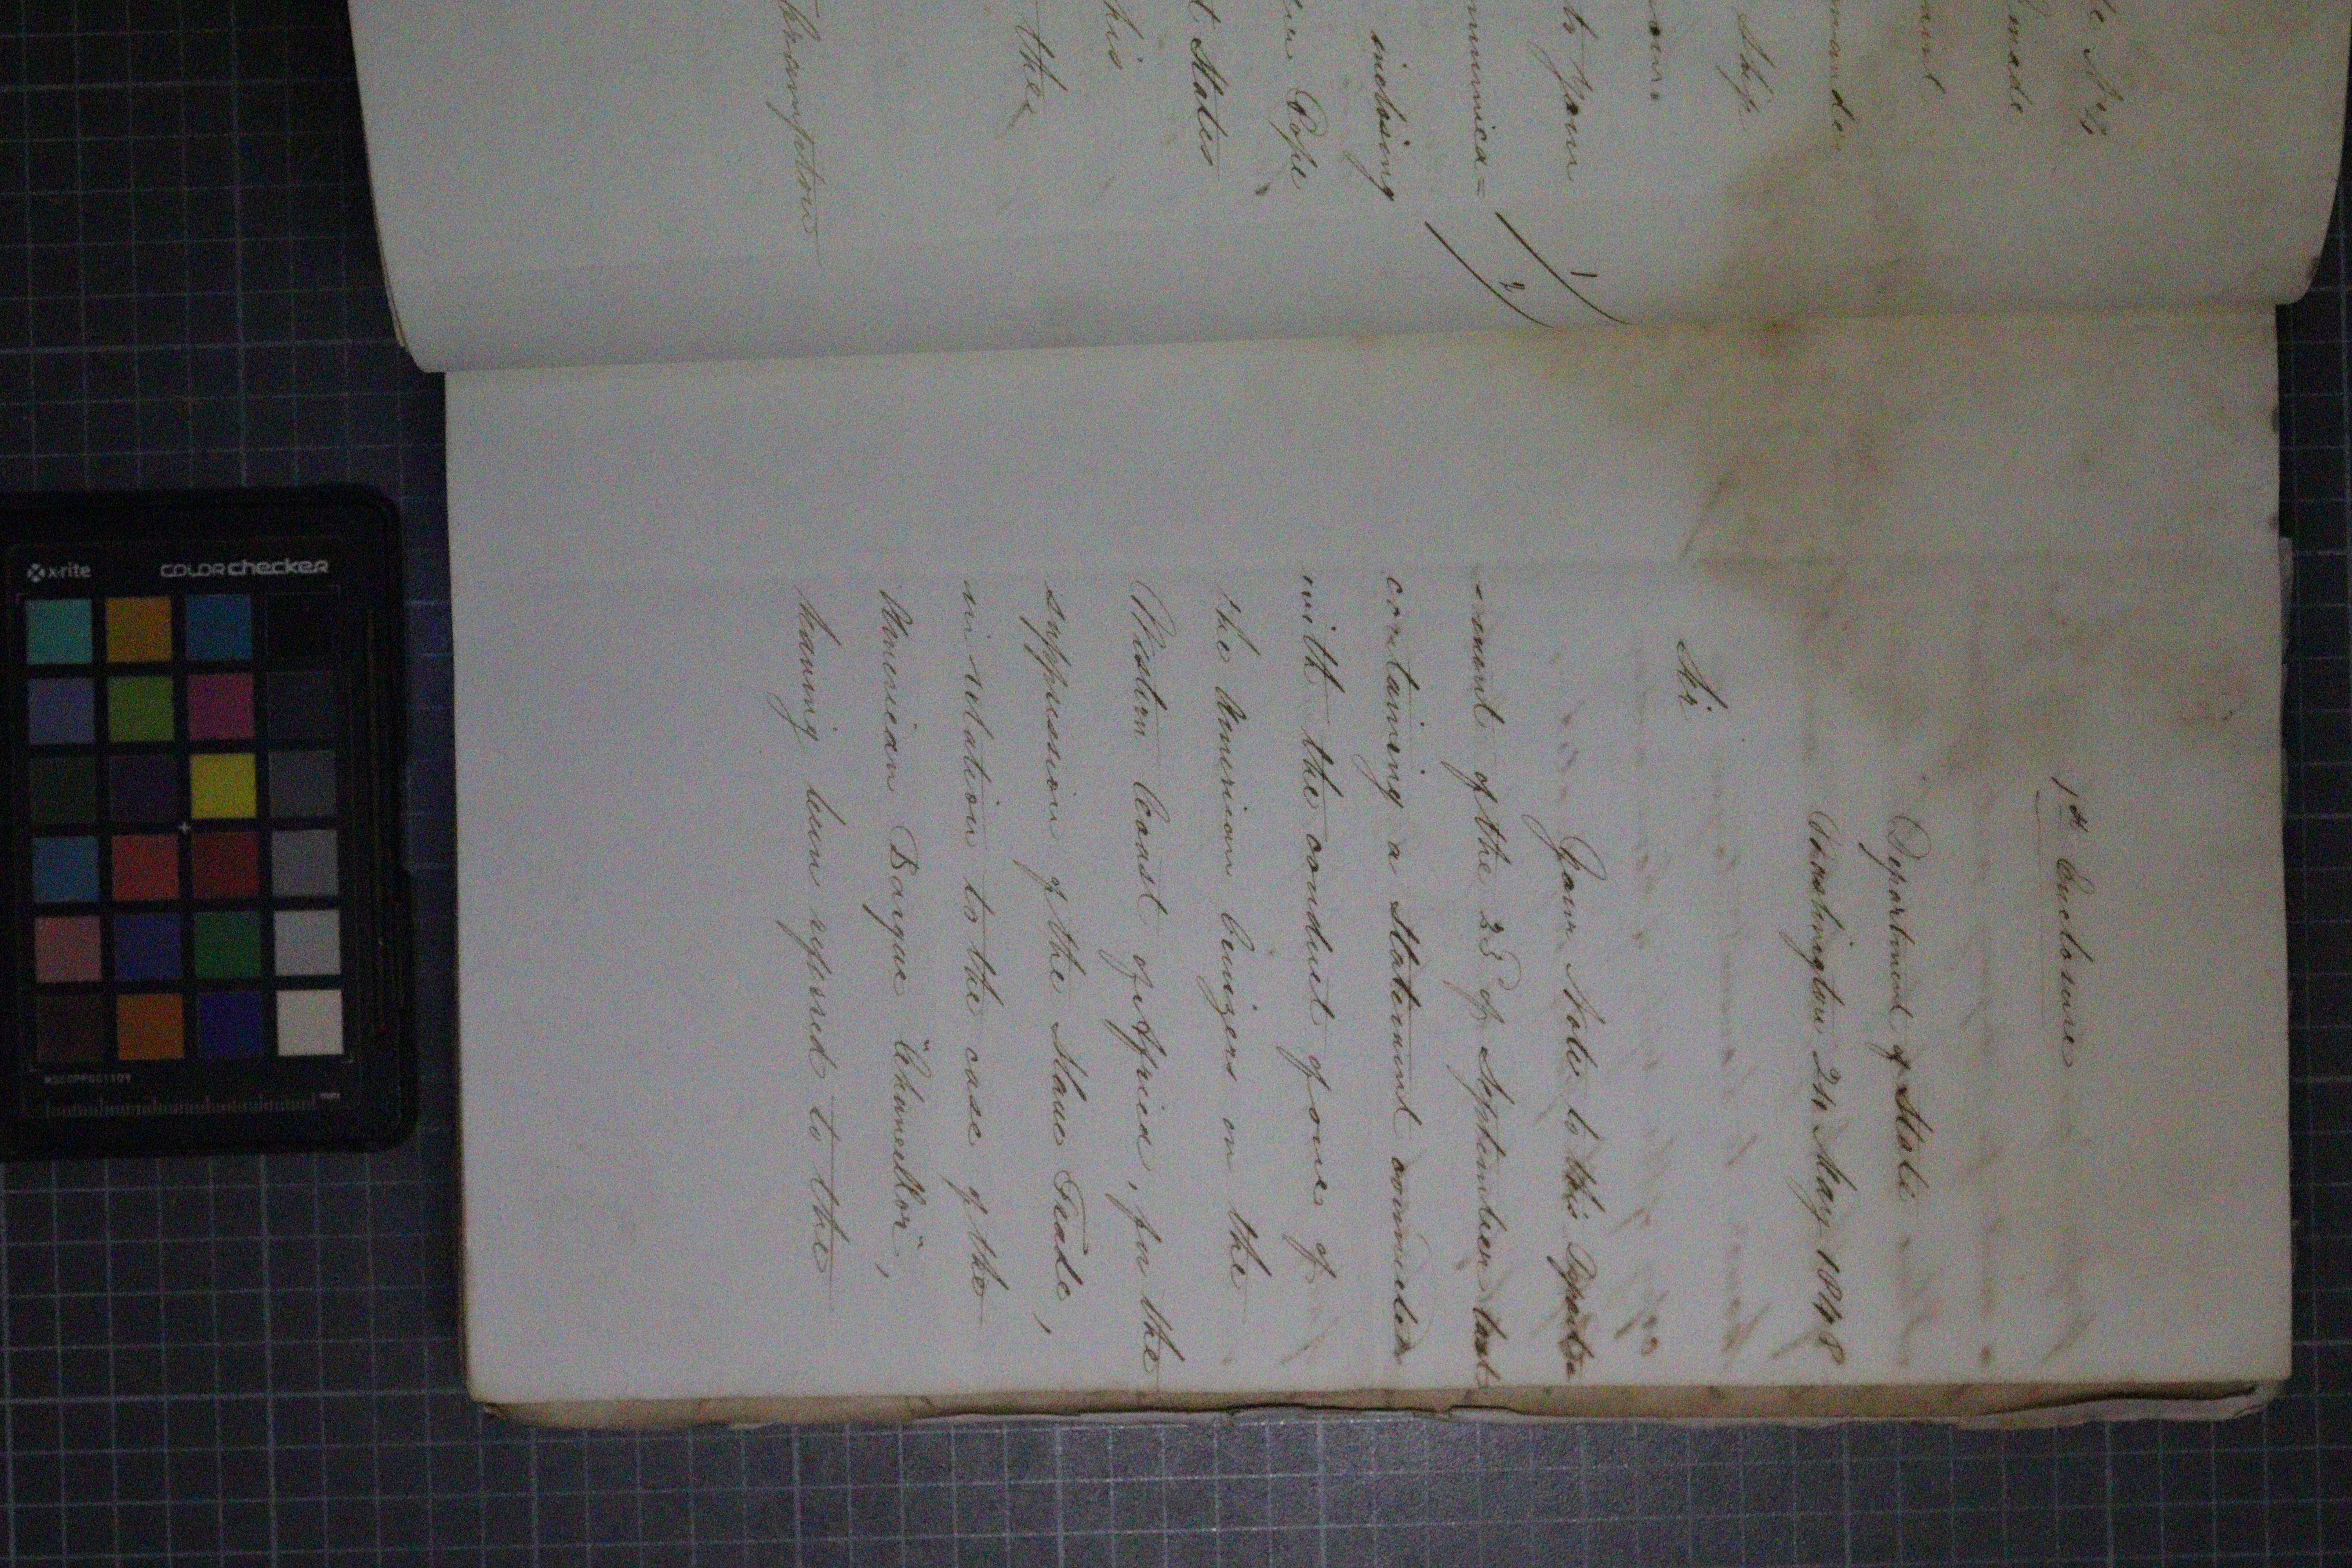 made
Ship
to your
mmunica=
inclosing
Pope
t States
his
the
Crampton
1
2
1st Enclosure
Department of State
Washington 24 May 1848
Sir
Your Note to this Depart=
=ment of the 23d of September last
containing a Statement connected
with the conduct of one of
the American Cruizers on the
Western Coast of Africa, for the
suppression of the Slave Trade,
in relation to the case of the
American Barque "Chancellor",
having been referred to the
x-rite
colorchecker
mm